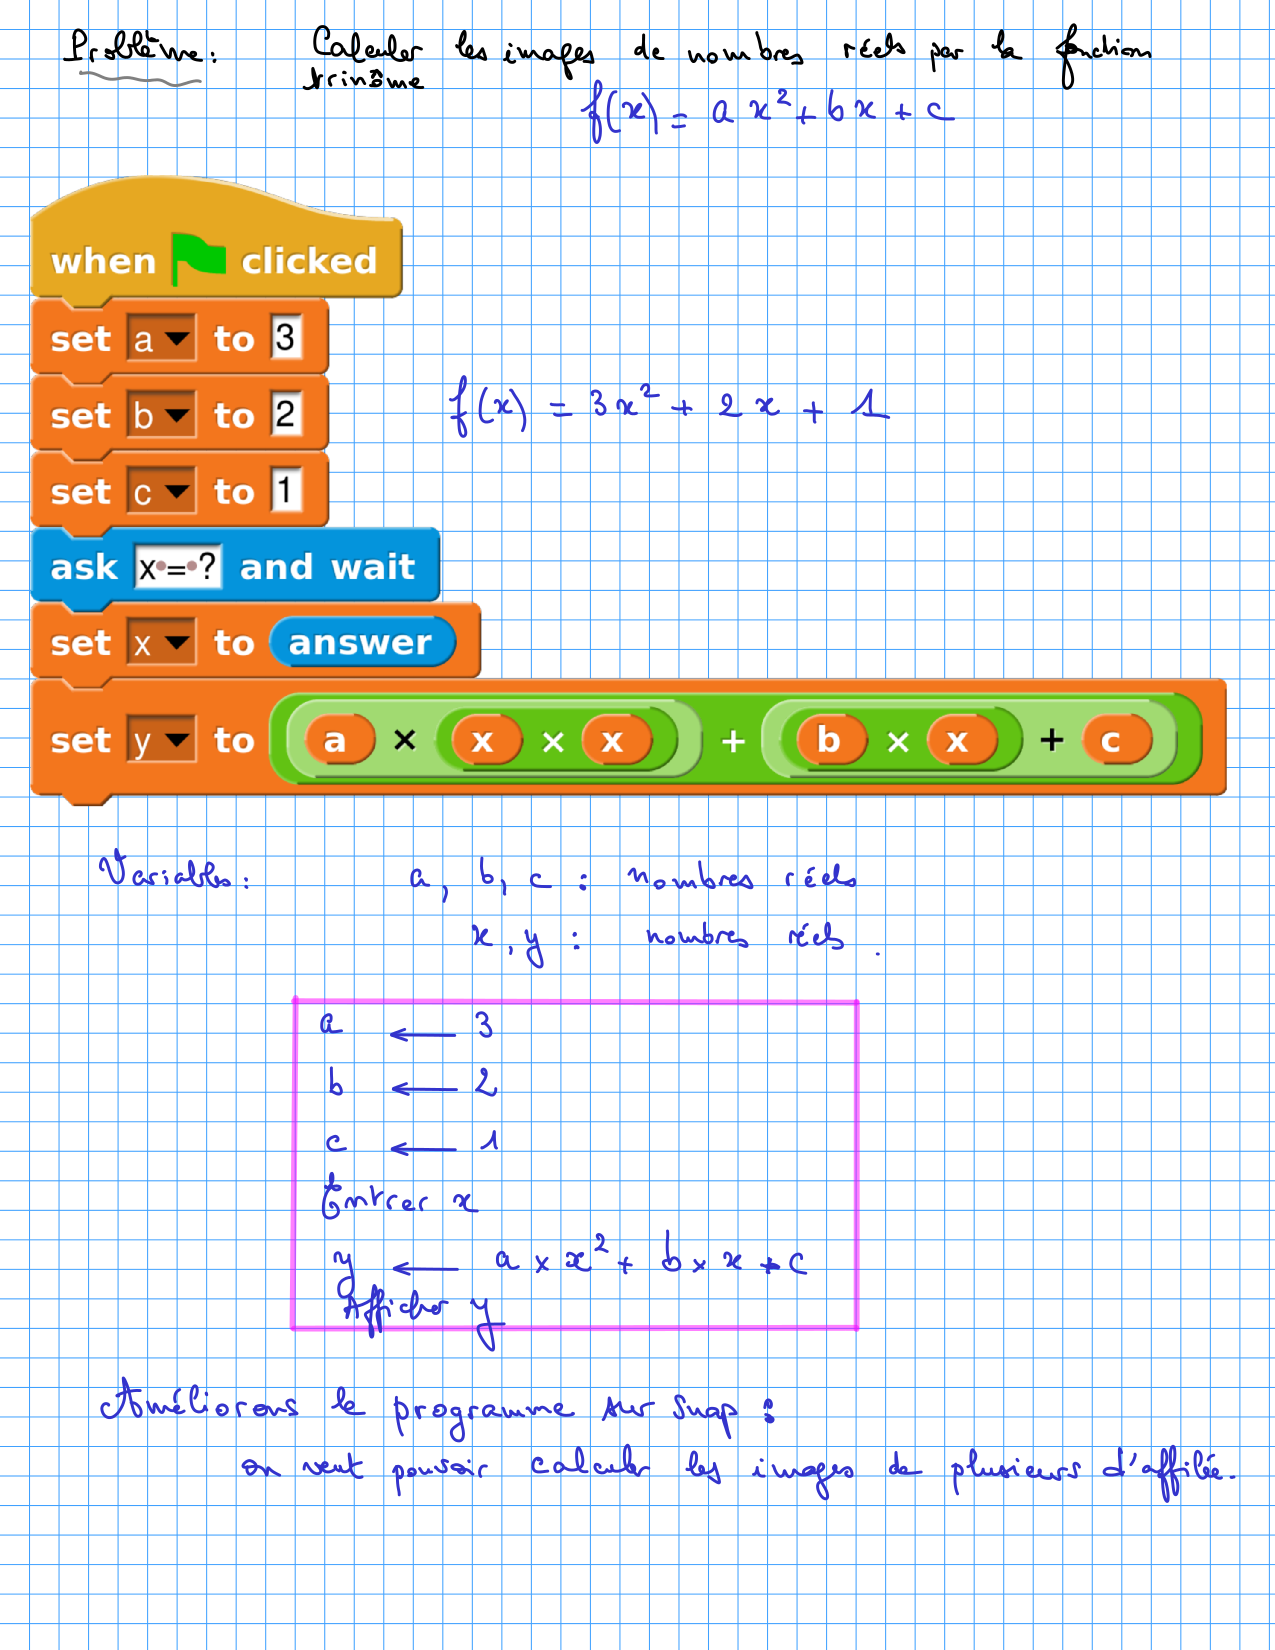 Problème: Calculer les images de nombres réels par la fonction
trinôme
f(x) = a x² + b x + c
when clicked
set a to 3
set b to 2
f(x) = 3x² + 2x + 1
set c to 1
ask x = ? and wait
set x to answer
set y to a × x × x + b × x + c
Variables: a, b, c : nombres réels
x, y : nombres réels.
a ← 3
b ← 2
c ← 1
Entrer x
y ← a × x² + b × x + c
Afficher y
Améliorons le programme sur Snap :
on veut pouvoir calculer les images de plusieurs d'affilée.